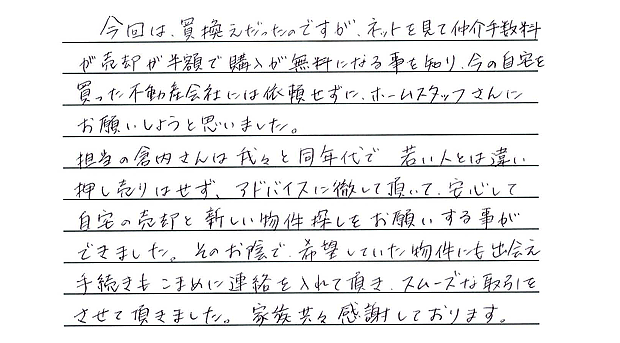 今回は、買換えだったのですが、ネットを見て仲介手数料
が売却が半額で購入が無料になる事を知り、今の自宅を
買った不動産会社には依頼せずに、ホームスタッフさんに
お願いしようと思いました。
担当の倉内さんは我々と同年代で 若い人とは違い
押し売りはせず、アドバイスに徹して頂いて、安心して
自宅の売却と新しい物件探しをお願いする事が
できました。そのお陰で、希望していた物件にも出会え
手続きもこまめに連絡を入れて頂き、スムーズな取引を
させて頂きました。家族共々感謝しております。